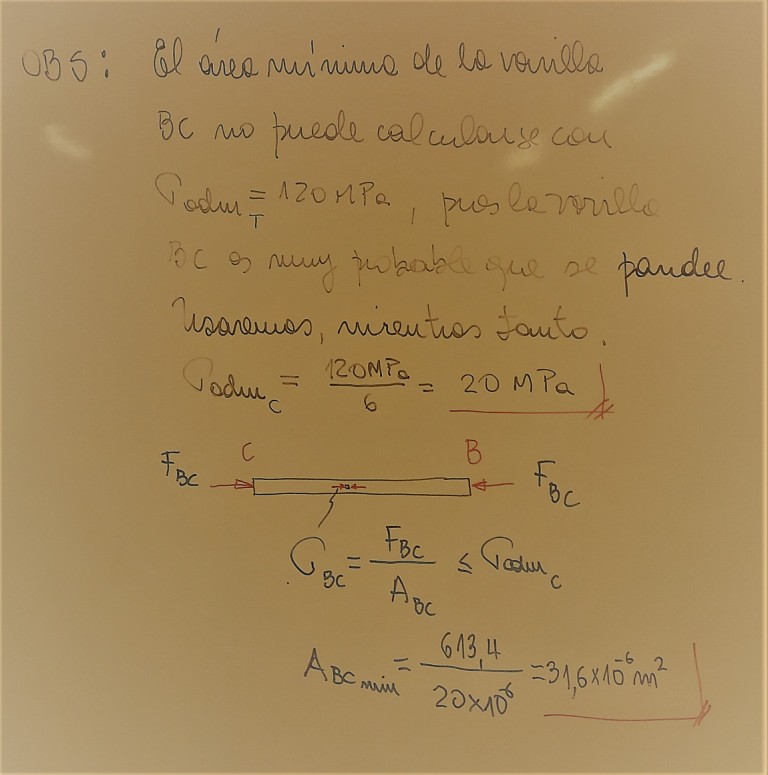 OBS: El área mínima de la varilla
BC no puede calcularse con
σadm T = 120 MPa, pues la varilla
BC es muy probable que se pandee.
Usaremos, mientras tanto.
σadm C = 120MPa / 6 = 20 MPa
C B
F BC F BC
σ BC = F BC / A BC ≤ σadm C
A BC min = 613,4 / 20×10⁻⁶ = 31,6×10⁻⁶ m²